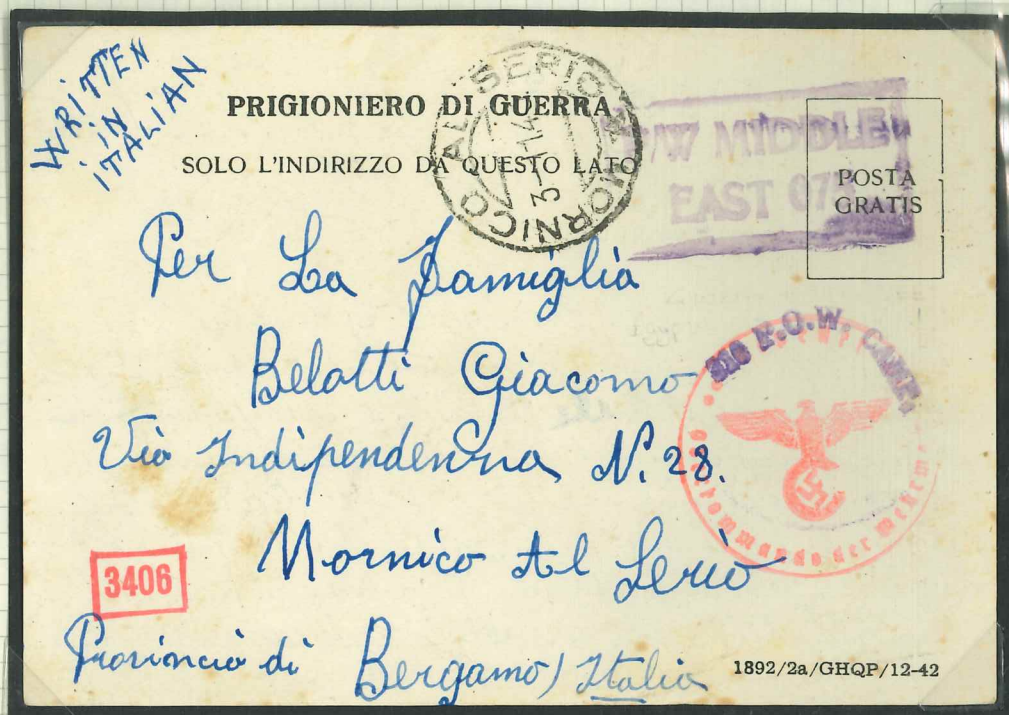 WRITTEN
IN
ITALIAN
PRIGIONIERO DI GUERRA
SOLO L'INDIRIZZO DA QUESTO LATO
MORNICO AL SERIO
P/W MIDDLE
EAST
POSTA
GRATIS
Per La Famiglia
Belotti Giacomo
Via Indipendenna N. 28.
Mornico Al Serio
Provincia di Bergamo / Italia
P.O.W.
Oberkommando der Wehrmacht
3406
1892/2a/GHQP/12-42